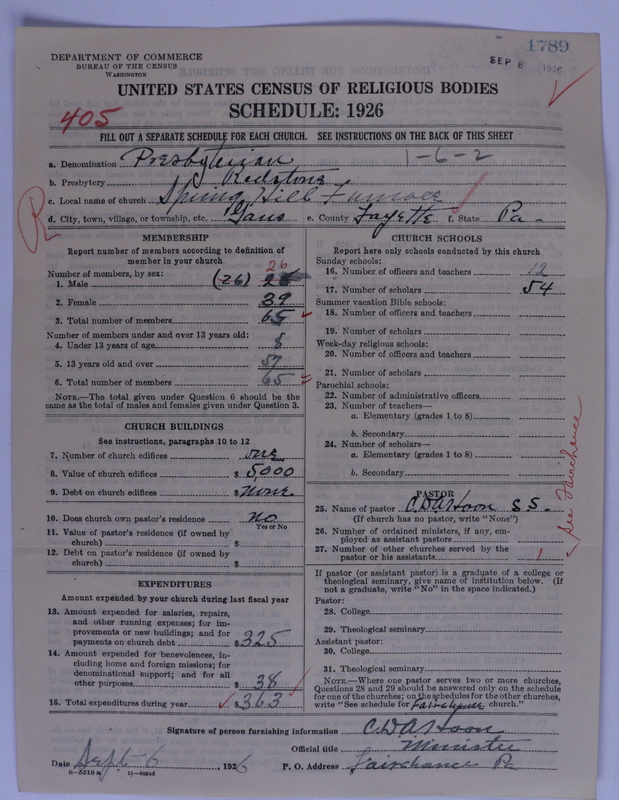 1789
SEP 8 1926
DEPARTMENT OF COMMERCE
BUREAU OF THE CENSUS
WASHINGTON
UNITED STATES CENSUS OF RELIGIOUS BODIES
SCHEDULE: 1926
405
FILL OUT A SEPARATE SCHEDULE FOR EACH CHURCH. SEE INSTRUCTIONS ON THE BACK OF THIS SHEET
a. Denomination Presbyterian 1-6-2
b. Presbytery Redstone
c. Local name of church Spring Hill Furnace
R
d. City, town, village, or township, etc. Gans e. County Fayette f. State Pa-
MEMBERSHIP
Report number of members according to definition of
member in your church
Number of members, by sex:
1. Male (26) 26
2. Female 39
3. Total number of members 65
Number of members under and over 13 years old:
4. Under 13 years of age 8
5. 13 years old and over 57
6. Total number of members 65
NOTE.—The total given under Question 6 should be
same as the total of males and females given under Question 3.
CHURCH BUILDINGS
See instructions, paragraphs 10 to 12
7. Number of church edifices one
8. Value of church edifices $ 5,000
9. Debt on church edifices $ none
10. Does church own pastor's residence No
Yes or No
11. Value of pastor's residence (if owned by
church) $
12. Debt on pastor's residence (if owned by
church) $
EXPENDITURES
Amount expended by your church during last fiscal year
13. Amount expended for salaries, repairs,
and other running expenses; for im-
provements or new buildings; and for
payments on church debt $ 325
14. Amount expended for benevolences, in-
cluding home and foreign missions; for
denominational support; and for all
other purposes $ 38
15. Total expenditures during year $ 363
CHURCH SCHOOLS
Report here only schools conducted by this church
Sunday schools:
16. Number of officers and teachers 12
17. Number of scholars 54
Summer vacation Bible schools:
18. Number of officers and teachers
19. Number of scholars
Week-day religious schools:
20. Number of officers and teachers
21. Number of scholars
Parochial schools:
22. Number of administrative officers
23. Number of teachers—
a. Elementary (grades 1 to 8)
b. Secondary
24. Number of scholars—
a. Elementary (grades 1 to 8)
b. Secondary
See Fairchance
PASTOR
25. Name of pastor S S-
(If church has no pastor, write "None")
26. Number of ordained ministers, if any, em-
ployed as assistant pastors
27. Number of other churches served by the
pastor or his assistants 1
If pastor (or assistant pastor) is a graduate of a college or
theological seminary, give name of institution below. (If
not a graduate, write "No" in the space indicated.)
Pastor:
28. College
29. Theological seminary
Assistant pastor:
30. College
31. Theological seminary
NOTE.—Where one pastor serves two or more churches,
Questions 28 and 29 should be answered only on the schedule
for one of the churches; on the schedules for the other churches,
write "See schedule for Fairchance church."
Signature of person furnishing information
Official title Minister
Date Sept-6, 1926 P. O. Address Fairchance Pa